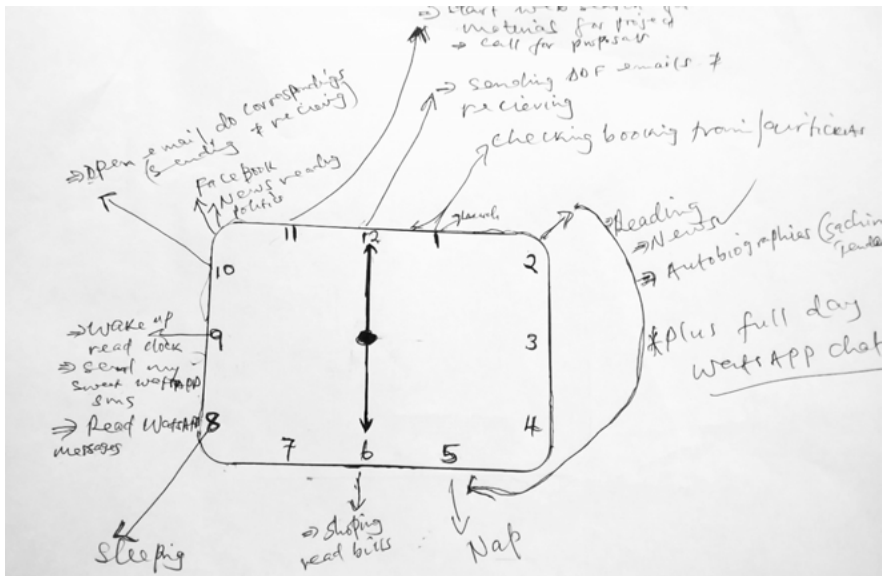 ⇒ Start web search
material for project
→ call for proposals
⇒ sending PDF emails &
recieving
checking booking train/airtickets
⇒ Open email do
(sending & recieving)
Facebook
News reading
politics
⇒ Reading
⇒ News
⇒ Autobiographies (sachin
*plus full day
WatsAPP chat
11
12
1
10
2
9
3
8
4
7
6
5
⇒ Wake up
read clock
⇒ send my
sweet WatsAPP
sms
⇒ Read WatsAPP
messages
Sleeping
⇒ Shoping
read bills
Nap